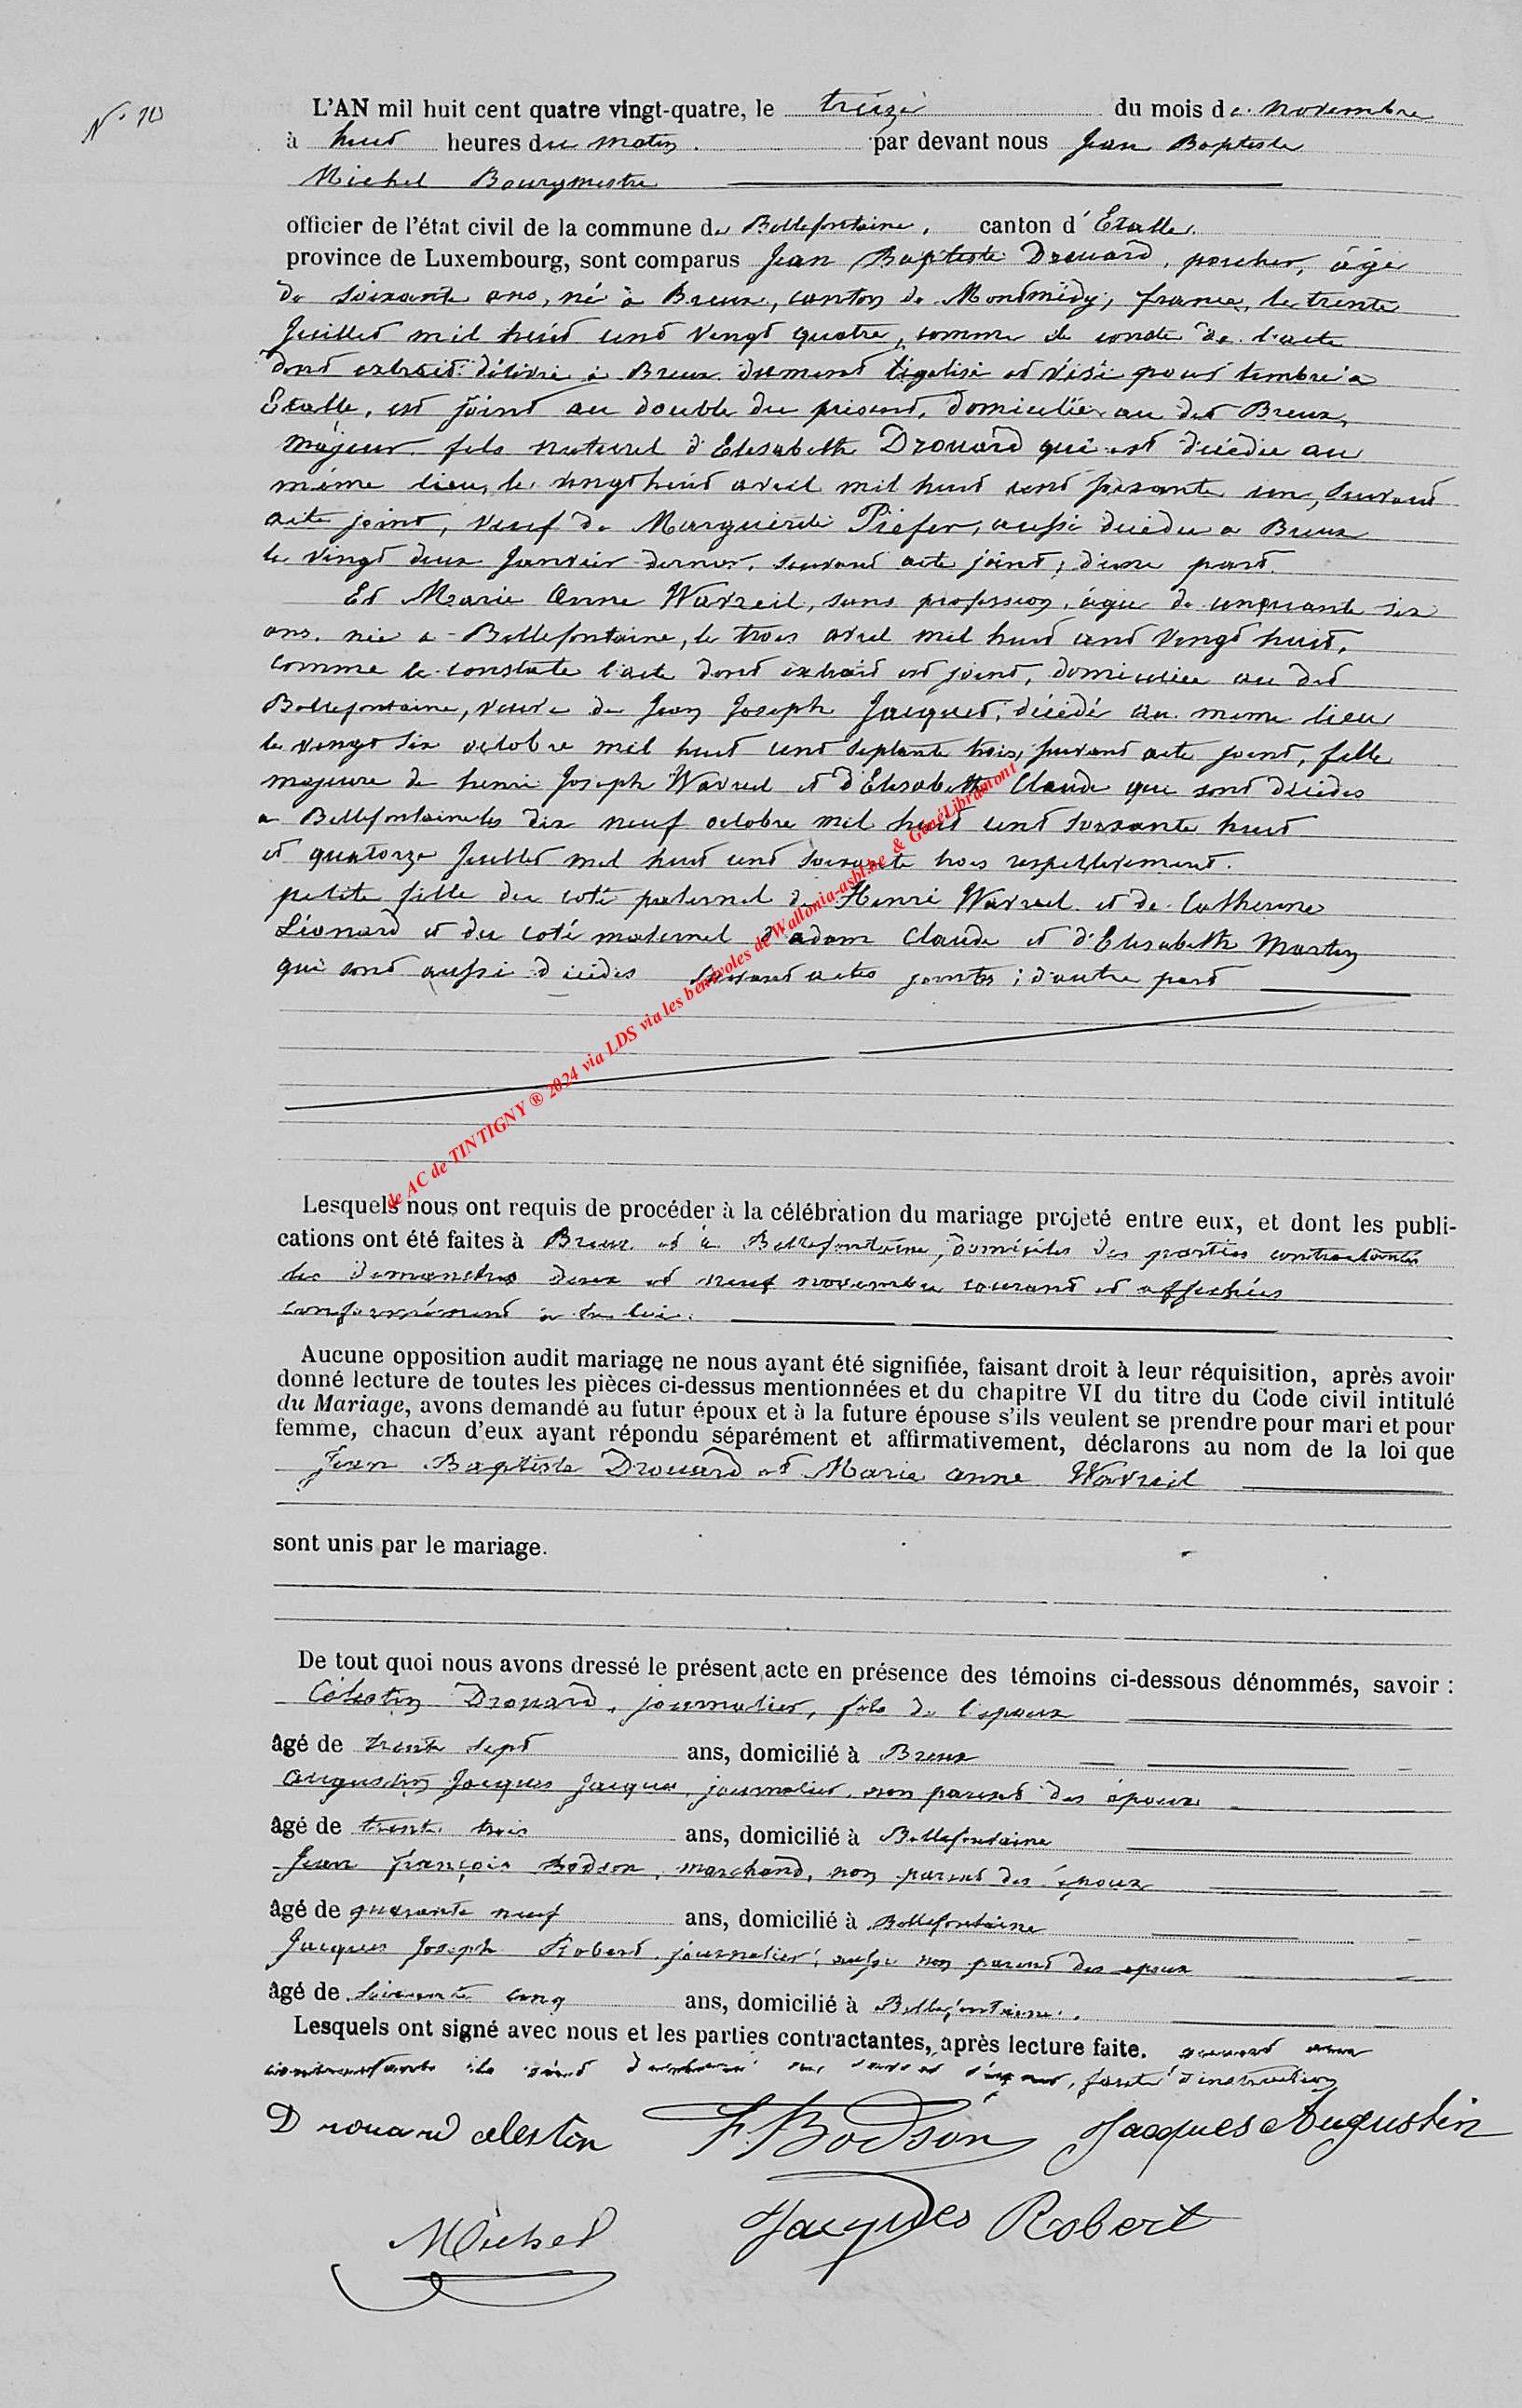 N° 10
L'AN mil huit cent quatre vingt-quatre, le treize du mois de novembre
à huit heures du matin. par devant nous Jean Baptiste
Michel Bourgmestre
officier de l'état civil de la commune de Bellefontaine, canton d'Etalle.
province de Luxembourg, sont comparus Jean Baptiste Drouard, porcher, âgé
de soixante ans, né à Breux, canton de Montmédy, france, le trente
Juillet mil huit cent vingt quatre, comme le conste de l'acte
dont extrait délivré à Breux dument légalisé et visé pour timbre a
Etalle, est joint au double du présent, domicilié au dit Breux,
majeur fils naturel d'Elisabeth Drouard qui est décédée au
même lieu, le vingt huit avril mil huit cent soixante un, suivant
acte joint, veuf de Marguerite Piefer, aussi décédée a Breux
le vingt deux Janvier dernier, suivant acte joint; d'une part.
Et Marie Anne Wavreil, sans profession, âgée de cinquante six
ans, née a Bellefontaine, le trois avril mil huit cent vingt huit,
comme le constate l'acte dont extrait est joint, domiciliée au dit
Bellefontaine, veuve de Jean Joseph Jacquet, décédé au meme lieu
le vingt six octobre mil huit cent septante trois, suivant acte joint, fille
majeure de henri Joseph Wavreil et d'Elisabeth Claude qui sont décédés
a Bellefontaine les dix neuf octobre mil huit cent soixante huit
et quatorze Juillet mil huit cent soixante trois respectivement.
petite fille du coté paternel de Henri Wavreil et de Catherine
Léonard et du coté maternel d'adam Claude et d'Elisabeth Martin
qui sont aussi décédés suivant actes joints; d'autre part
de AC de TINTIGNY ® 2024 via LDS via les bénévoles de Wallonia-asbl.be & GénéLibramont
Lesquels nous ont requis de procéder à la célébration du mariage projeté entre eux, et dont les publi-
cations ont été faites à Breux et à Bellefontaine, domiciles des parties contractantes
les dimanches deux et neuf novembre courant et affichées
conformément a la loi.
Aucune opposition audit mariage ne nous ayant été signifiée, faisant droit à leur réquisition, après avoir
donné lecture de toutes les pièces ci-dessus mentionnées et du chapitre VI du titre du Code civil intitulé
du Mariage, avons demandé au futur époux et à la future épouse s'ils veulent se prendre pour mari et pour
femme, chacun d'eux ayant répondu séparément et affirmativement, déclarons au nom de la loi que
Jean Baptiste Drouard et Marie anne Wavreil
sont unis par le mariage.
De tout quoi nous avons dressé le présent acte en présence des témoins ci-dessous dénommés, savoir :
Célestin Drouard, journalier, fils de l'époux
âgé de trente sept ans, domicilié à Breux
Augustin Jacques, journalier, non parent des époux
âgé de trente trois ans, domicilié à Bellefontaine
Jean françois Bodson, marchand, non parent des époux
âgé de quarante neuf ans, domicilié à Bellefontaine
Jacques Joseph Robert, journalier, aussi non parent des époux
âgé de soixante cinq ans, domicilié à Bellefontaine.
Lesquels ont signé avec nous et les parties contractantes, après lecture faite.
contractants ils ont déclaré ne savoir signer, faute d'instruction
Drouard celestin F. Bodson Jacques Augustin
Michel Jacques Robert